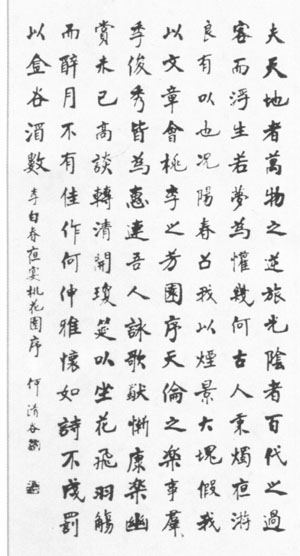 夫天地者萬物之逆旅光陰者百代之過
客而浮生若夢為懽幾何古人秉燭夜游
良有以也況陽春召我以煙景大塊假我
以文章會桃李之芳園序天倫之樂事羣
季俊秀皆為惠連吾人詠歌獨慚康樂幽
賞未已高談轉清開瓊筵以坐花飛羽觴
而醉月不有佳作何伸雅懷如詩不成罰
以金谷酒數 李白春夜宴桃花園序 清谷